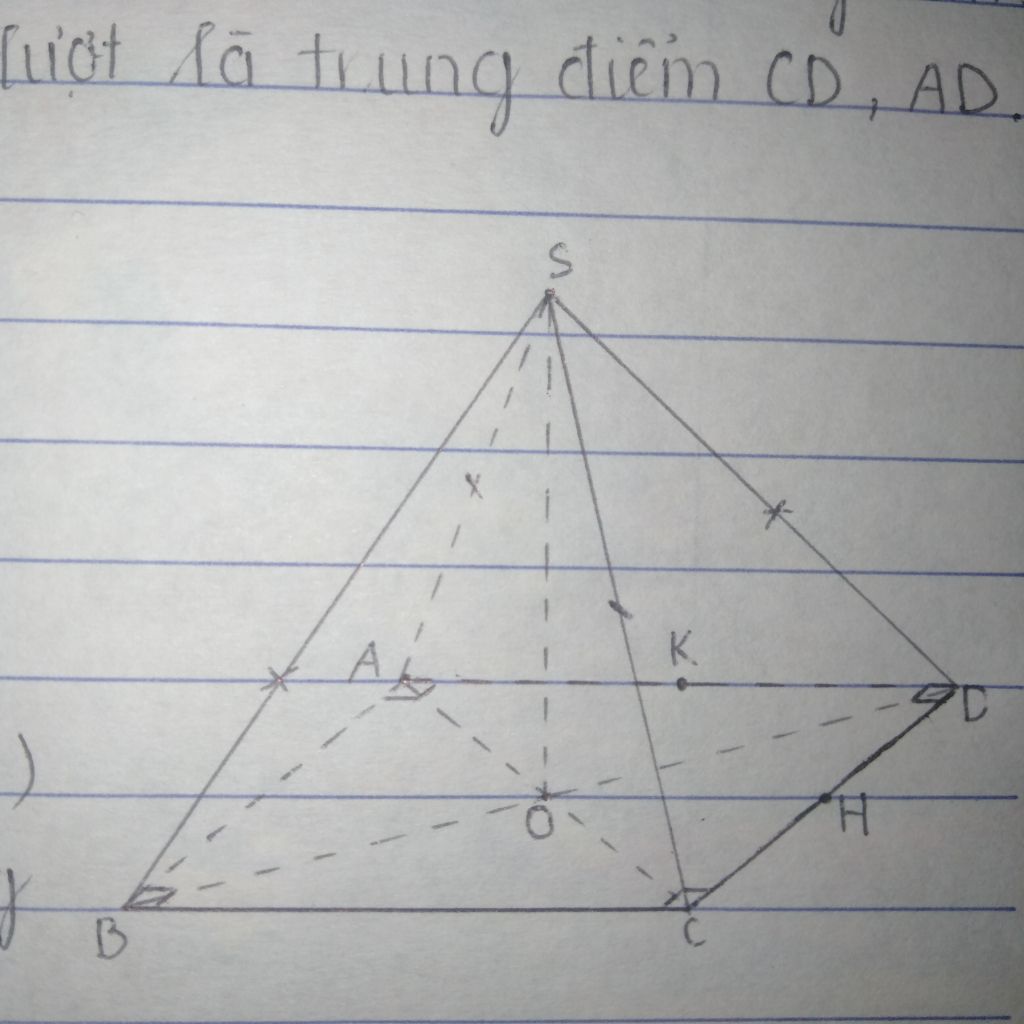 lượt là trung điểm CD, AD.
S
A
K
D
)
O
H
B
C